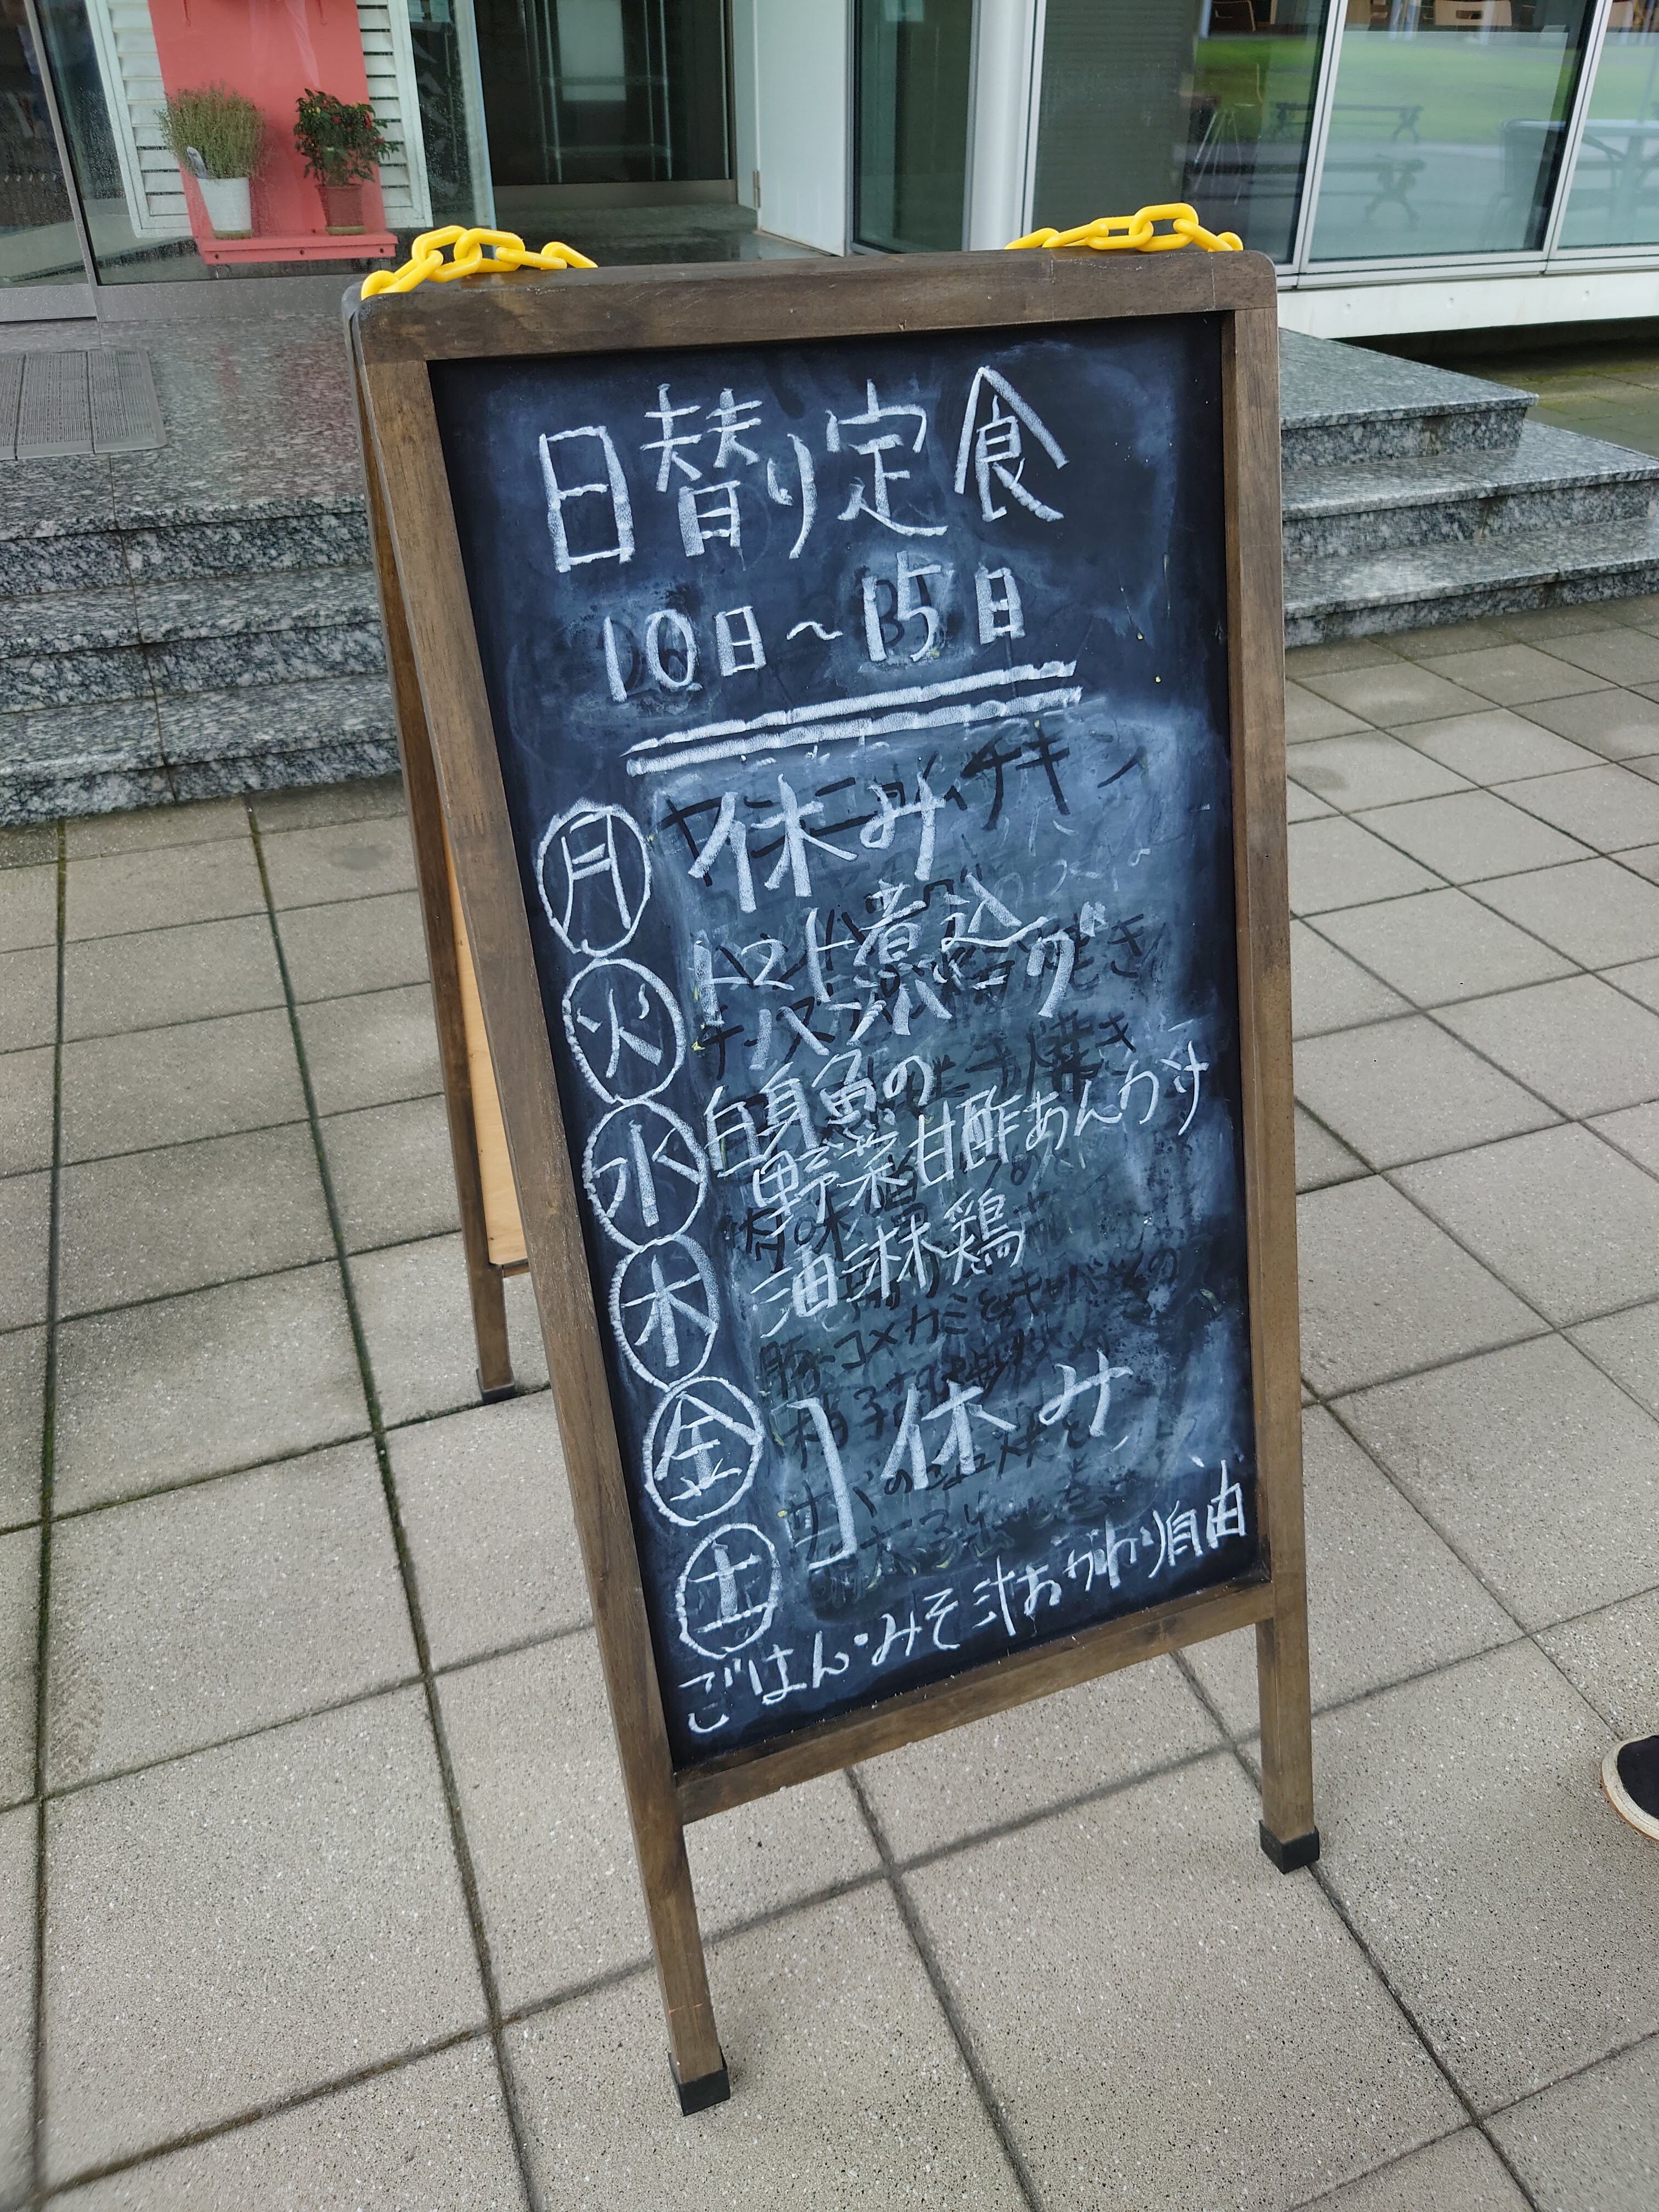 日替り定食
10日～15日
月 休み
火 トマト煮込
ハンバーグ
水 白身魚の
野菜甘酢あんかけ
木 油淋鶏
金
土 ] 休み
ごはん・みそ汁おかわり自由